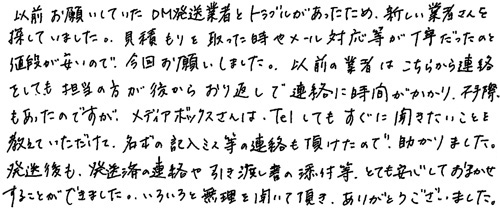 以前お願いしていたDM発送業者とトラブルがあったため、新しい業者さんを
探していました。見積もりを取った時やメール対応等が丁寧だったのと
値段が安いので、今回お願いしました。以前の業者はこちらから連絡
をしても担当の方が後からおり返しで連絡に時間がかかり、不手際
もあったのですが、メディアボックスさんは、Telしてもすぐに聞きたいことを
教えていただけて、名まえの記入ミス等の連絡も頂けたので、助かりました。
発送後も、発送済の連絡や引き渡し書の添付等、とても安心しておまかせ
することができました。いろいろと無理を聞いて頂き、ありがとうございました。